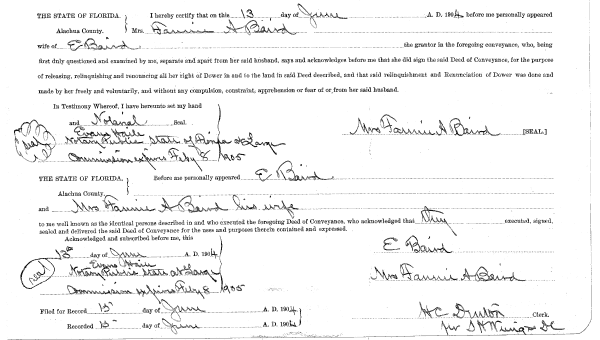 THE STATE OF FLORIDA. I hereby certify that on this 13 day of June A. D. 1904, before me personally appeared
Alachua County. Mrs. Fannie A Baird
wife of E Baird the grantor in the foregoing conveyance, who, being
first duly questioned and examined by me, separate and apart from her said husband, says and acknowledges before me that she did sign the said Deed of Conveyance, for the purpose
of releasing, relinquishing and renouncing all her right of Dower in and to the land in said Deed described, and that said relinquishment and Renunciation of Dower was done and
made by her freely and voluntarily, and without any compulsion, constraint, apprehension or fear of or from her said husband.
In Testimony Whereof, I have hereunto set my hand
and Notarial Seal.
Evans Haile
Notary Public State of Florida at Large
Commission expires Feby 8 1905
Seal
Mrs Fannie A Baird [SEAL.]
THE STATE OF FLORIDA. Before me personally appeared E Baird
Alachua County.
and Mrs Fannie A Baird his wife
to me well known as the identical persons described in and who executed the foregoing Deed of Conveyance, who acknowledged that they executed, signed,
sealed and delivered the said Deed of Conveyance for the uses and purposes therein contained and expressed.
Acknowledged and subscribed before me, this
13th day of June A. D. 1904
Evans Haile
Notary Public State at Large
Commission expires Feby 8 1905
Seal
E Baird
Mrs Fannie A Baird
Filed for Record 15 day of June A. D. 1904
Recorded 15 day of June A. D. 1904
H C Denton Clerk.
per S H Wienges DC